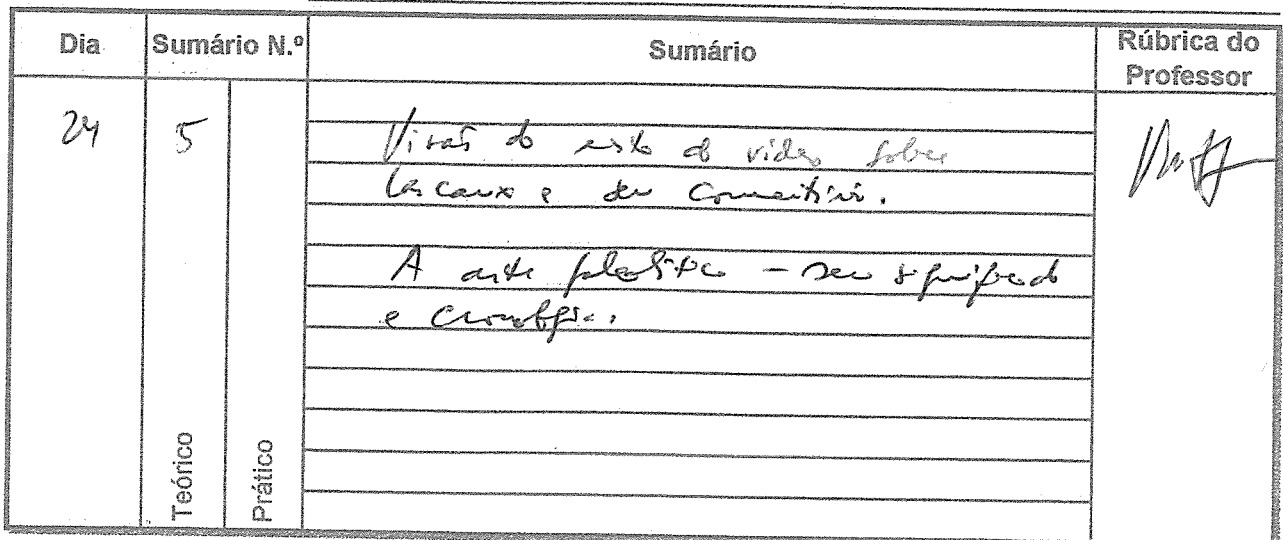 Dia Sumário N.º Sumário Rúbrica do Professor
24 5
Visão do resto do vídeo sobre
Lascaux e seu comentário.
A arte paleolítica – seu significado
e cronologia.
Teórico Prático